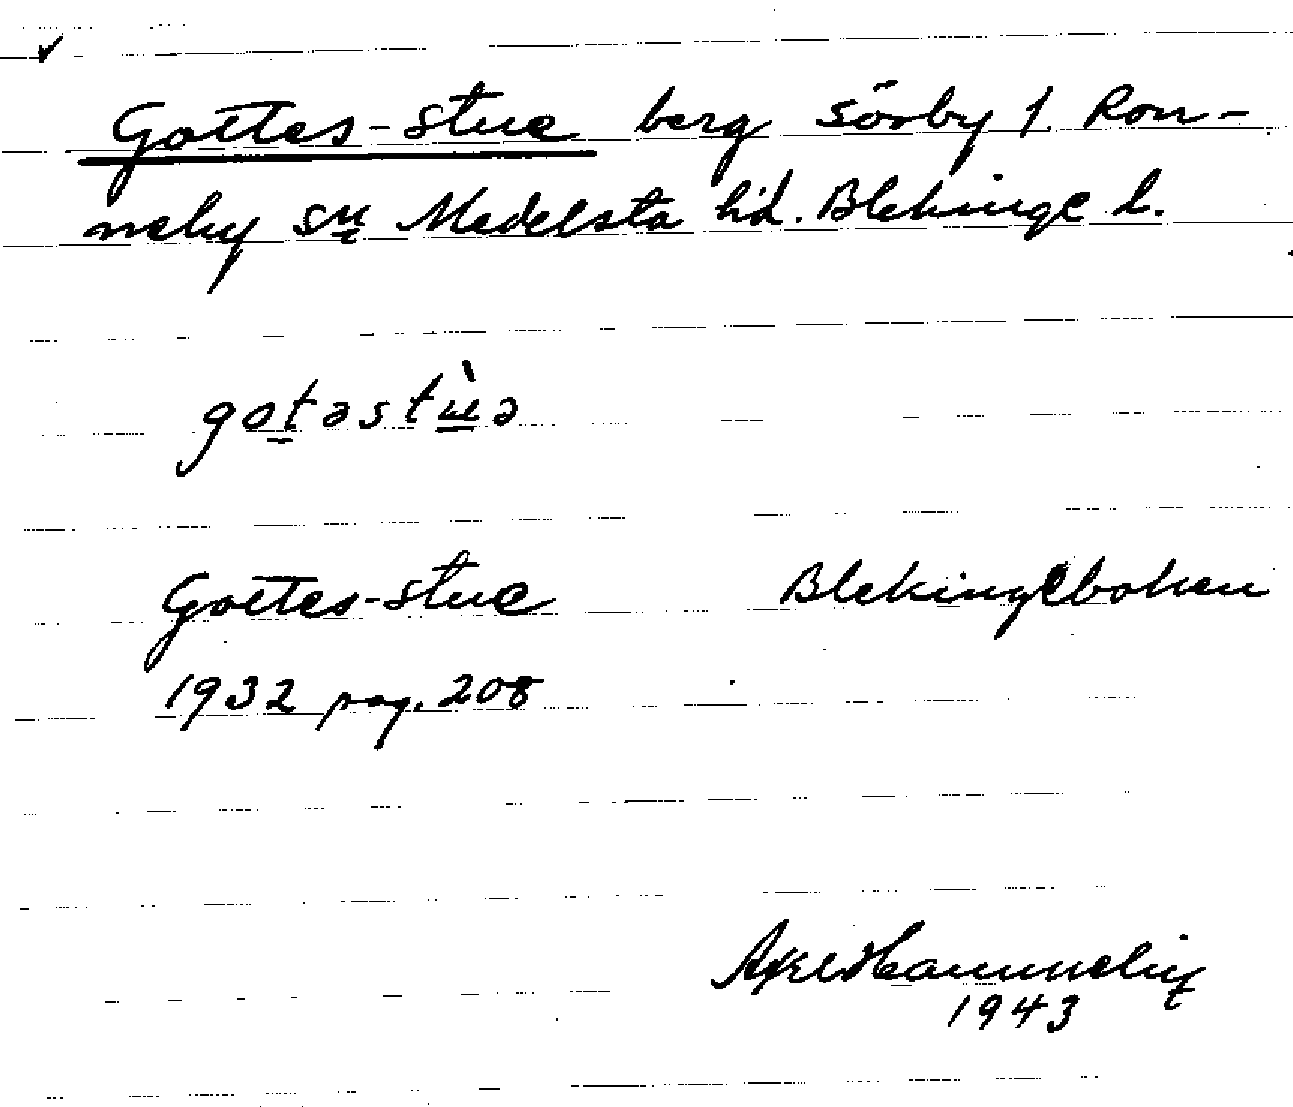 Gottes-stue berg Sörby f. Ron-
neby sn Medelsta hd. Blekinge l.
gotəstùə
Gottes-stue Blekingeboken
1932 pag. 208
Axel
1943